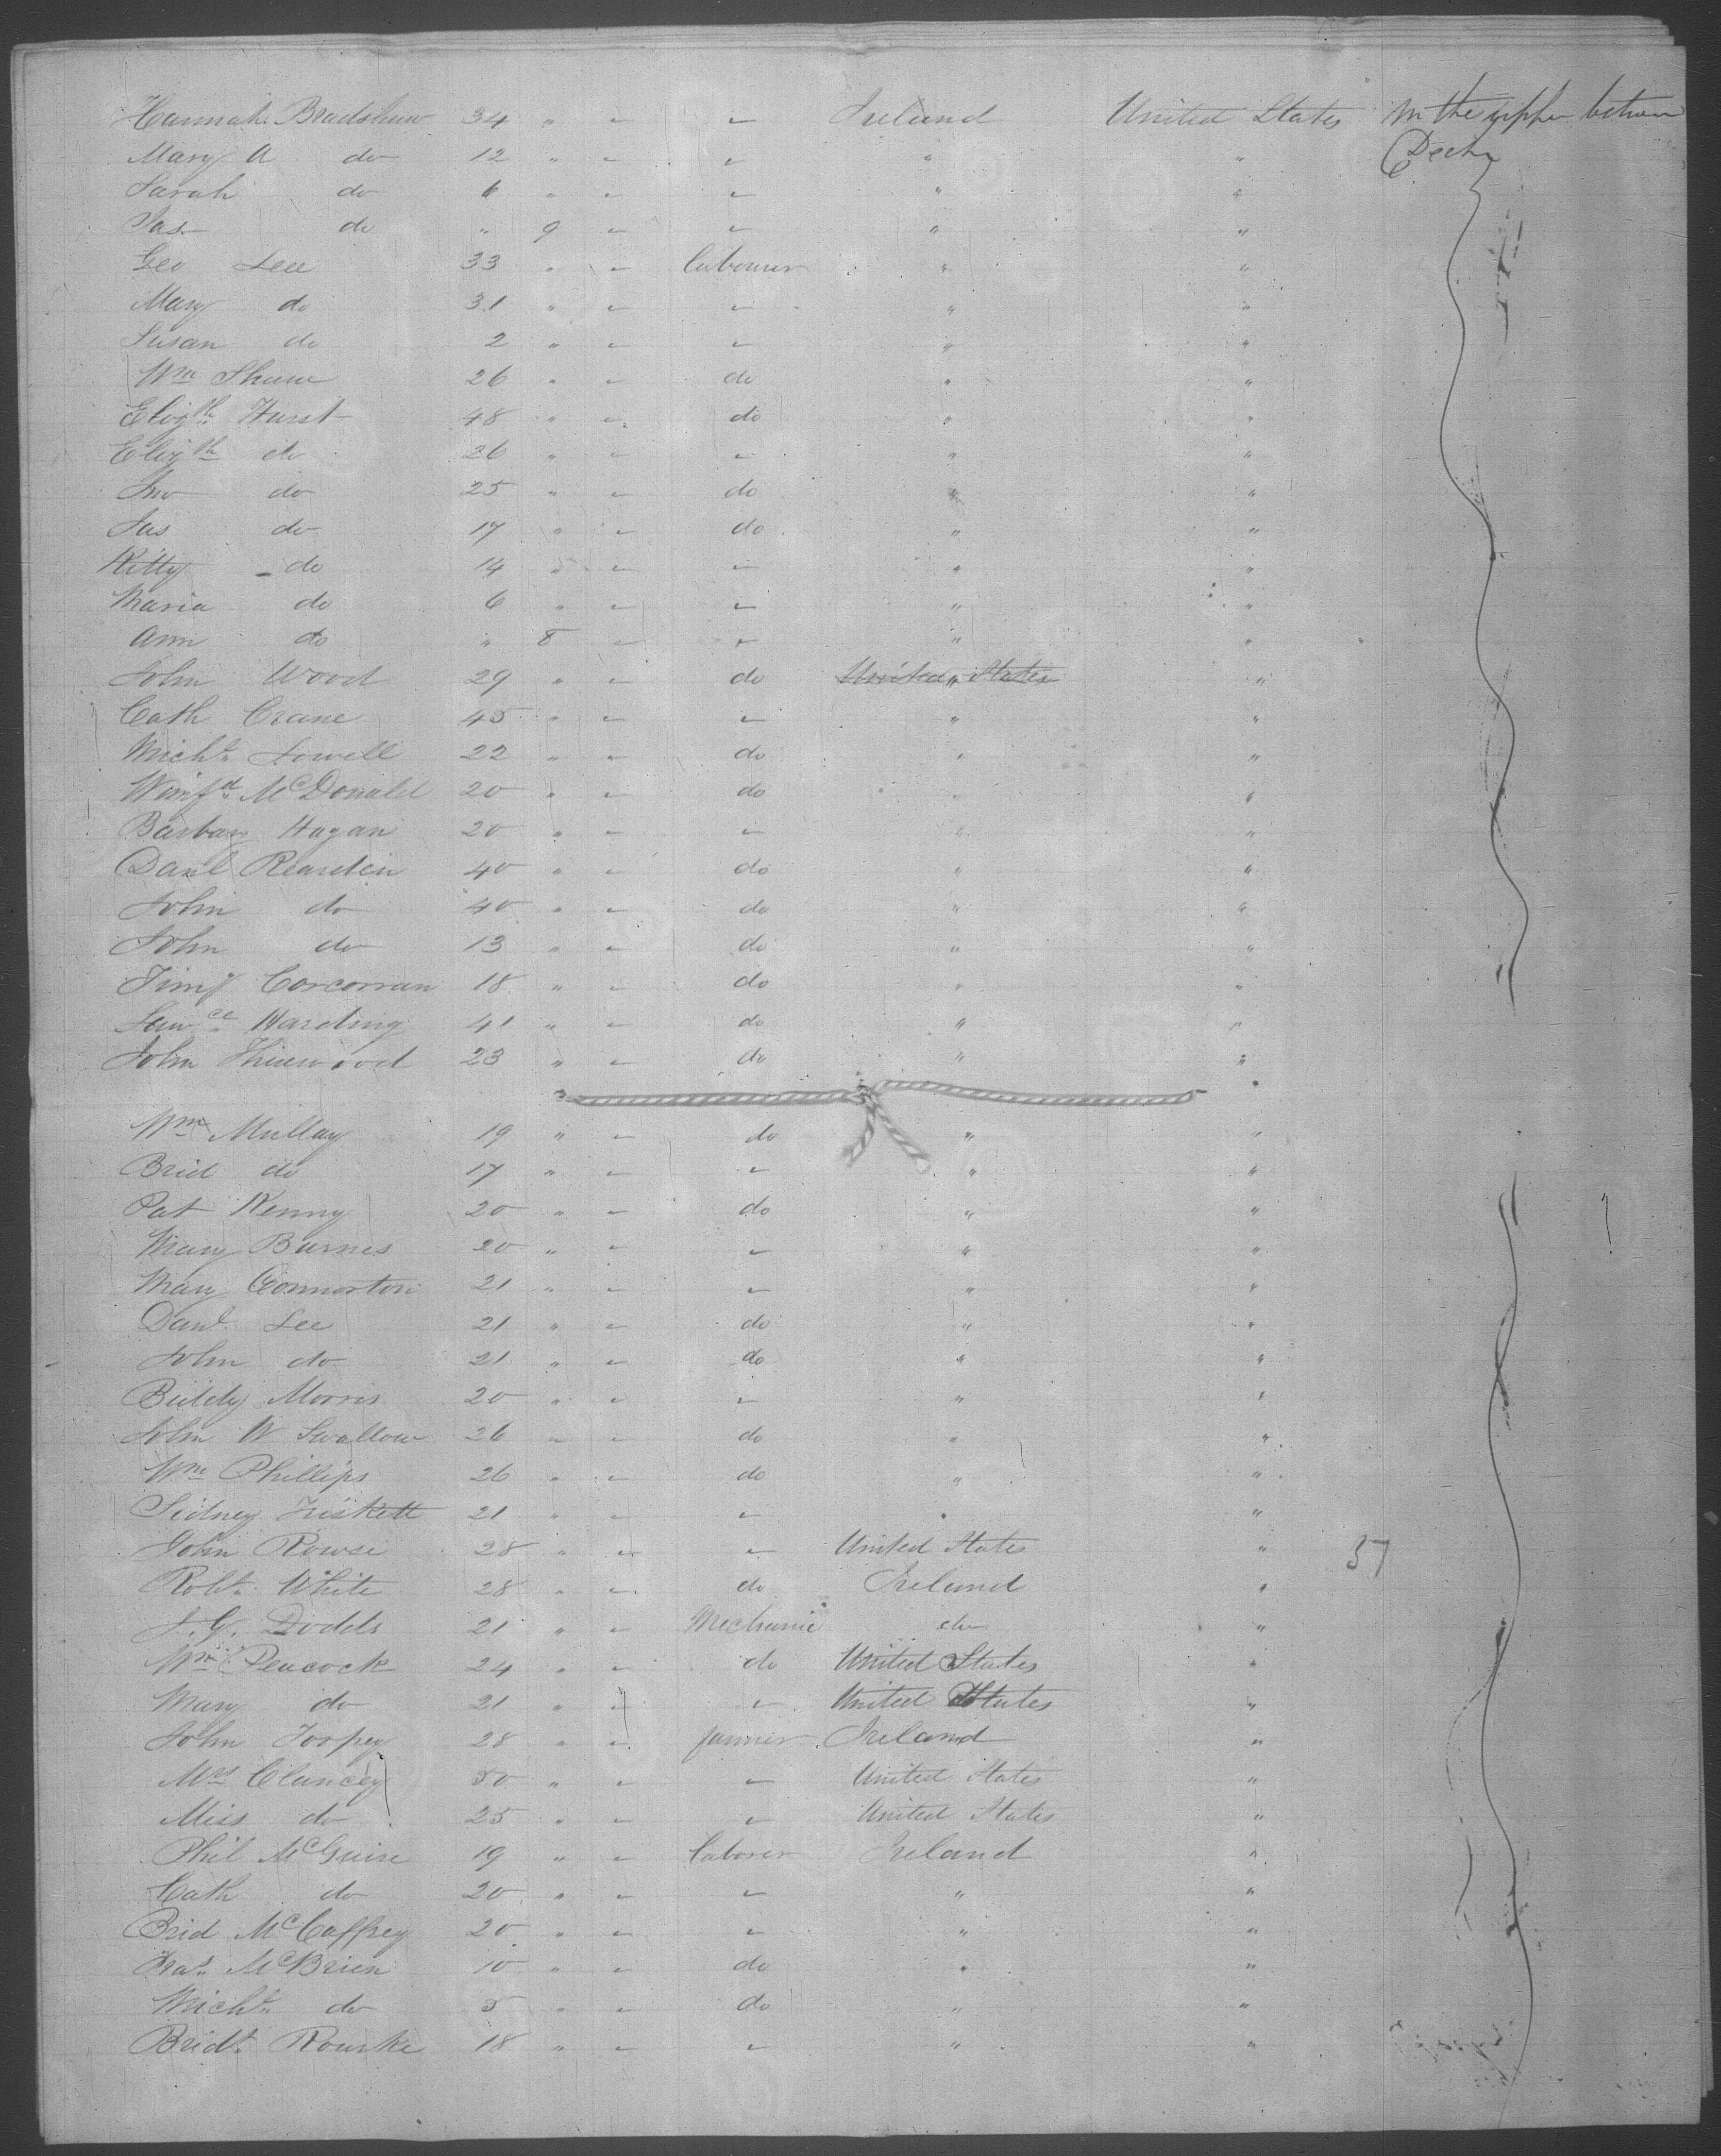 Hannah Bradshaw 34 " " " Ireland United States In the upper between
Mary A do 12 " " " " " Decks
Sarah do 6 " " " " "
Jas do " 9 " " " "
Geo Lee 33 " " labourer " "
Mary do 31 " " " " "
Susan do 2 " " " " "
Wm Shaw 26 " " do " "
Elizth Hurst 48 " " do " "
Elizth do 26 " " " " "
Jno do 25 " " do " "
Jas do 17 " " do " "
Kitty do 14 " " " " "
Maria do 6 " " " " "
Ann do " 8 " " " "
John Wood 29 " " do United States " "
Cath Crane 45 " " " " "
Michl Lowell 22 " " do " "
Winfd McDonald 20 " " do " "
Barbary Hagan 20 " " " " "
Danl Rearden 40 " " do " "
John do 40 " " do " "
John do 13 " " do " "
Timy Corcorran 18 " " do " "
Lawce Harding 41 " " do " "
John 23 " " do " "
Wm Mullay 19 " " do " "
Brid do 17 " " " " "
Pat Kenny 20 " " do " "
Mary Burnes 20 " " " " "
Mary Connorton 21 " " " " "
Danl Lee 21 " " do " "
John do 21 " " do " "
Biddy Morris 20 " " " " "
John W Swallow 26 " " do " "
Wm Phillips 26 " " do " "
Sidney 21 " " " " "
John Rowse 28 " " " United States " 37
Robt White 28 " " do Ireland "
J. G. Dodds 21 " " Mechanic do "
Wm Peacock 24 " " do United States "
Mary do 21 " " " United States "
John Toopey 28 " " farmer Ireland "
Mrs Clancey 50 " " " United States "
Miss do 25 " " " United States "
Phil McGuire 19 " " laborer Ireland "
Cath do 20 " " " " "
Brid McCaffrey 20 " " " " "
Fras McBrien 10 " " do " "
Michl do 5 " " do " "
Bridt Rourke 18 " " " " "